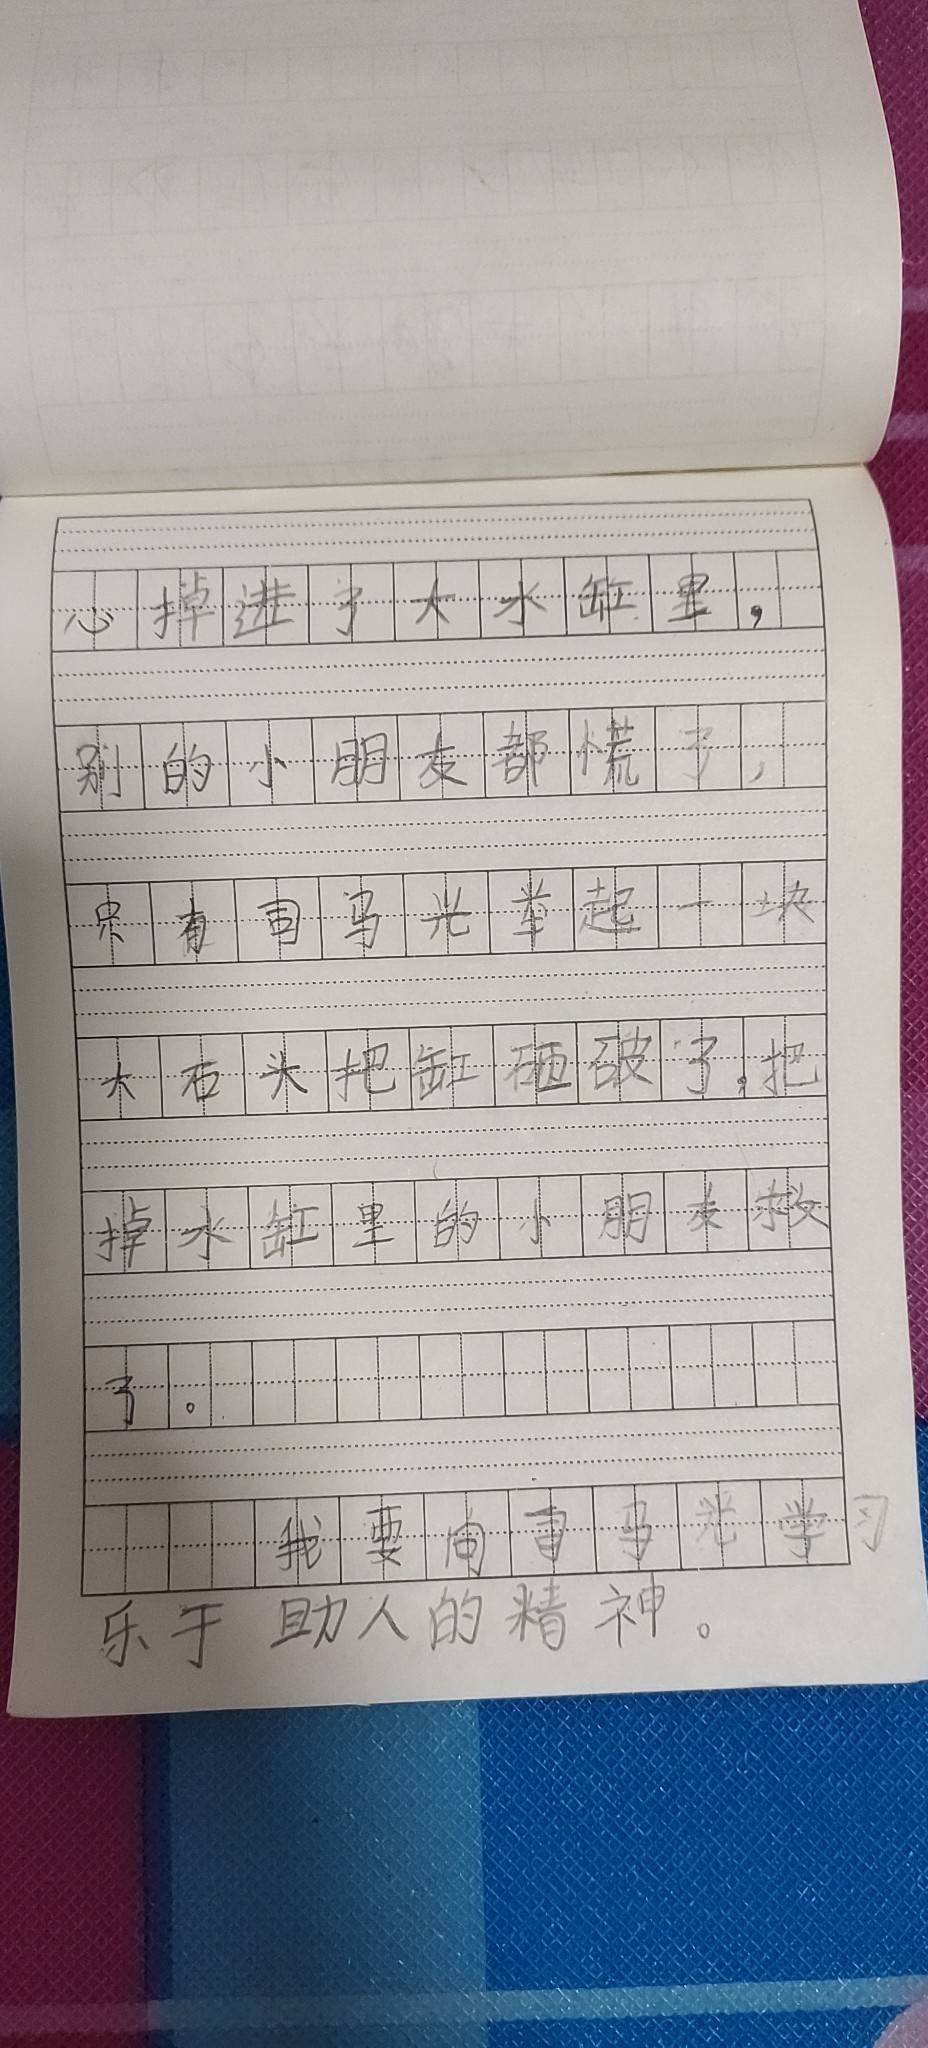 心掉进了大水缸里，
别的小朋友都慌了，
只有司马光举起一块
大石头把缸砸破了，把
掉水缸里的小朋友救
了。
我要向司马光学习
乐于助人的精神。